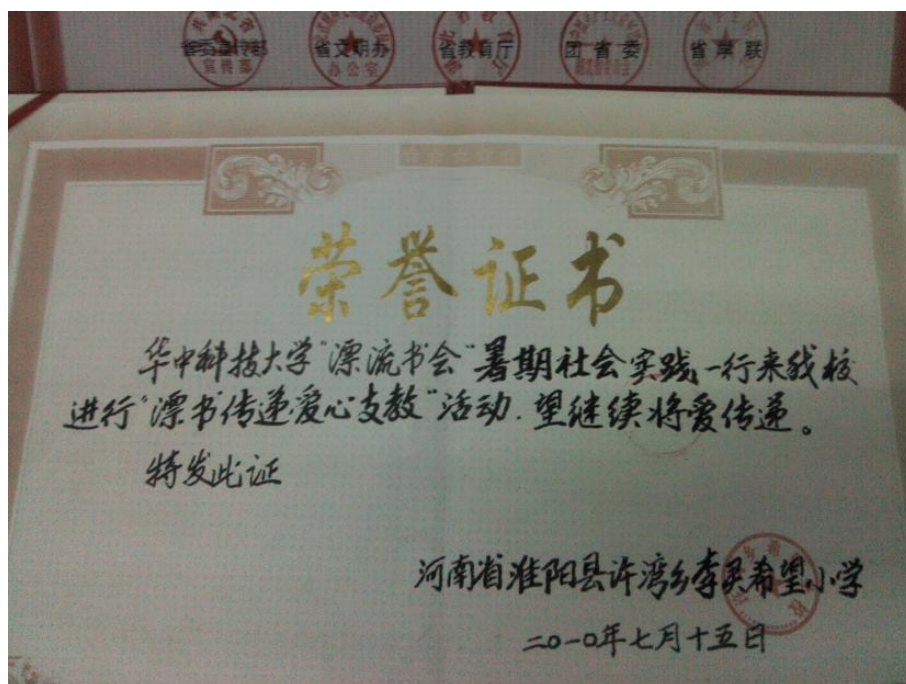 省委宣传部 省文明办 省教育厅 团省委 省学联
宣传部 办公室
荣誉证书
华中科技大学“漂流书会”暑期社会实践一行来我校
进行“漂书传递爱心支教”活动.望继续将爱传递。
特发此证
河南省淮阳县许湾乡李灵希望小学
二〇一〇年七月十五日